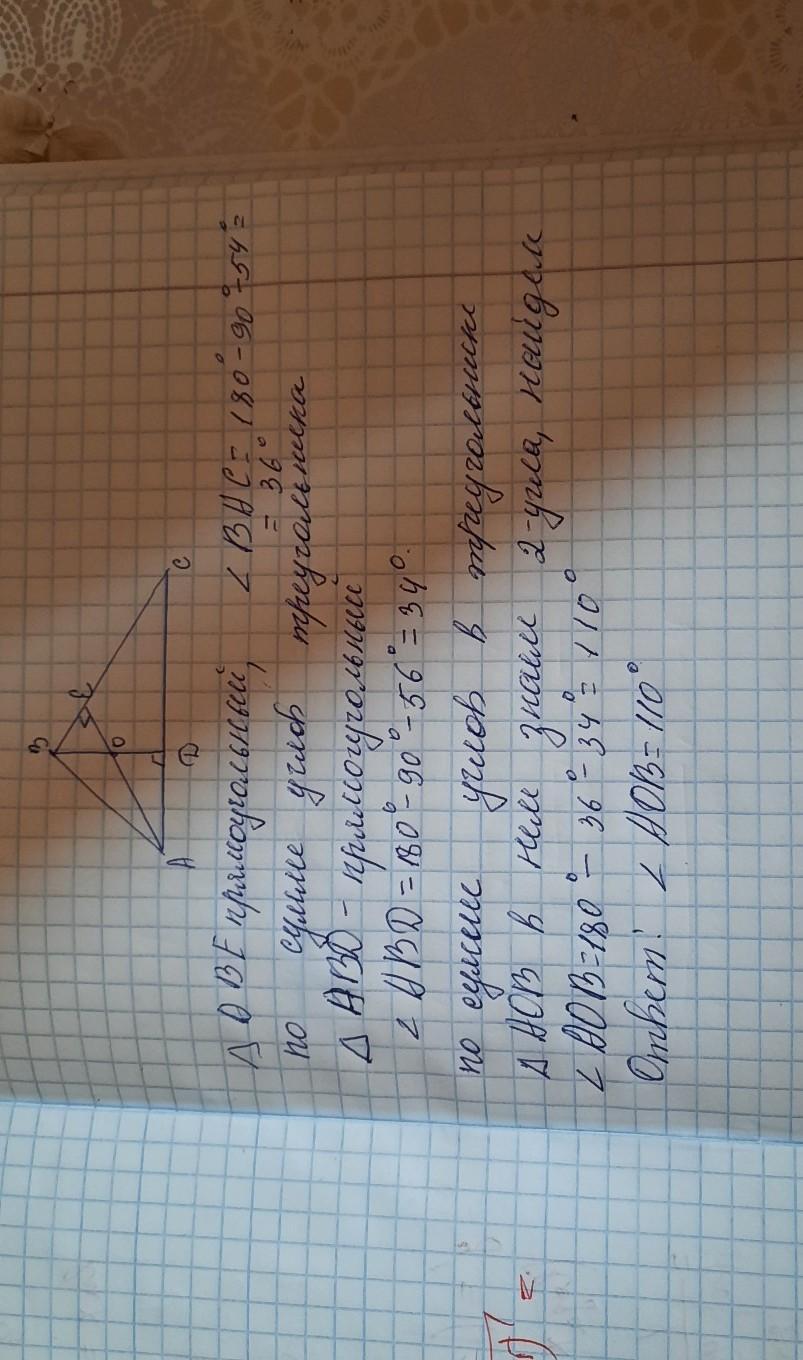 B
E
O
A
D
C
Δ ABE прямоугольный, ∠ BAC = 180° - 90° - 54° =
= 36°
по сумме углов треугольника
Δ ABD - прямоугольный
∠ ABD = 180° - 90° - 56° = 34°.
по сумме углов в треугольнике
Δ AOB в нем знаем 2-угла, найдем
∠ AOB = 180° - 36° - 34° = 110°
Ответ: ∠ AOB = 110°